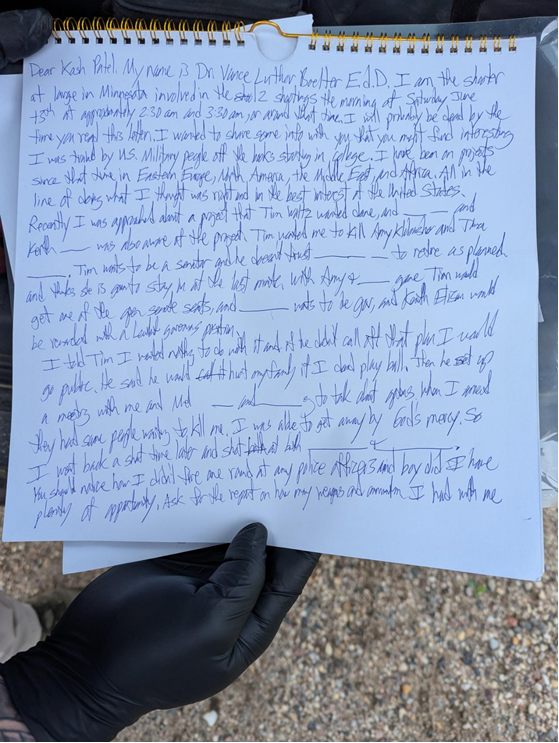 Dear Kash Patel My name is Dr. Vance Luther Boelter Ed.D. I am the shooter
at large in Minnesota involved in the 2 shootings the morning of Saturday June
at approximately 2:30 am and 3:30 am, or around that time. I will probably be dead by the
time you read this letter. I wanted to share some info with you that you might find interesting
I was trained by U.S. Military people off the books starting in college. I have been on projects
since that time in Eastern Europe, North America, the Middle East, and Africa. All in the
line of doing what I thought was right and in the best interest of the United States.
Recently I was approached about a project that Tim Waltz wanted done, and ____ and
Keith ____ was also aware of the project. Tim wanted me to kill Amy Klobuchar and Tina
____. Tim wants to be a senator and he doesn't trust ____ to retire as planned
and thinks she is gonna stay in at the last minute. With Amy & ____ gone Tim would
get one of the open senate seats, and ____ wants to be gov, and Keith Elison would
be rewarded with a position
I told Tim I wanted nothing to do with it and if he didn't call off that plan I would
go public. He said he would hurt my family if I didn't play ball. Then he set up
a meeting with me and ____ and ____ to talk about options when I arrived
they had some people waiting to kill me. I was able to get away by God's mercy. So
I went back a short time later and shot at both ____
You should notice how I didn't fire one round at any police officers and boy did I have
plenty of opportunity. Ask for the report on how many weapons and ammunition I had with me